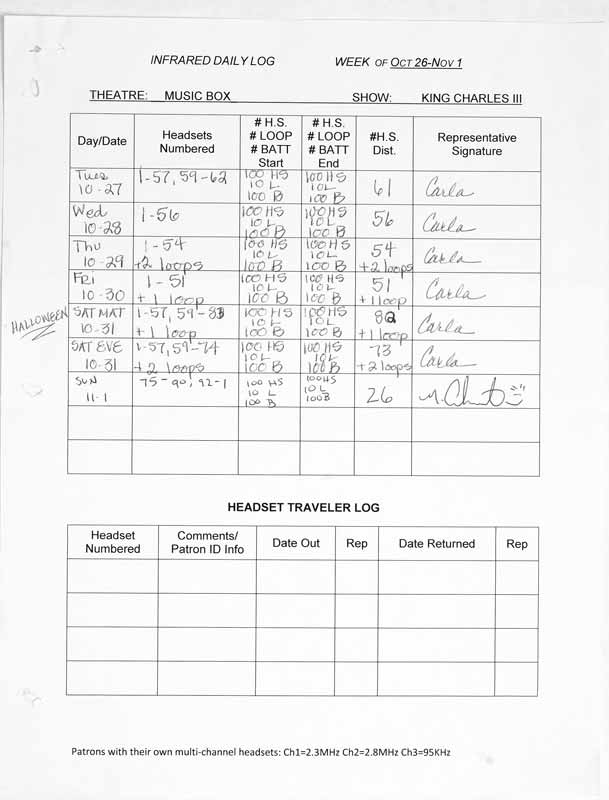 INFRARED DAILY LOG WEEK OF OCT 26-NOV 1
THEATRE: MUSIC BOX SHOW: KING CHARLES III
Day/Date Headsets Numbered # H.S. # LOOP # BATT Start # H.S. # LOOP # BATT End #H.S. Dist. Representative Signature
Tues 10-27 1-57, 59-62 100 HS 10 L 100 B 100 HS 10L 100 B 61 Carla
Wed 10-28 1-56 100 HS 10 L 100 B 100 HS 10 L 100 B 56 Carla
Thu 10-29 1-54 +2 loops 100 HS 10 L 100 B 100 HS 10L 100 B 54 +2 loops Carla
FRI 10-30 1-51 +1 loop 100 HS 10 L 100 B 100 HS 10L 100 B 51 +1 loop Carla
HALLOWEEN SAT MAT 10-31 1-57, 59-83 +1 loop 100 HS 10 L 100 B 100 HS 10 L 100 B 82 +1 loop Carla
SAT EVE 10-31 1-57, 59-74 +2 loops 100 HS 10 L 100 B 100 HS 10L 100 B 73 +2 loops Carla
SUN 11-1 75-90, 92-1 100 HS 10 L 100 B 100HS 10 L 100B 26
HEADSET TRAVELER LOG
Headset Numbered Comments/ Patron ID Info Date Out Rep Date Returned Rep
Patrons with their own multi-channel headsets: Ch1=2.3MHz Ch2=2.8MHz Ch3=95KHz